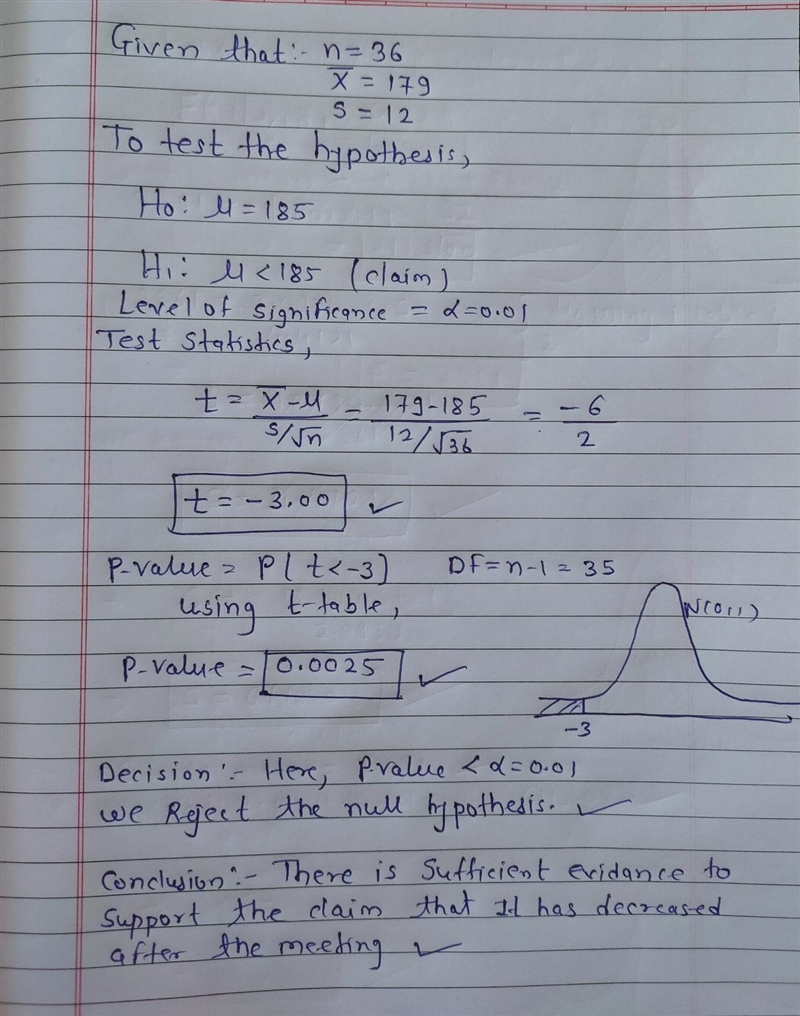 Given that:- n = 36
x̄ = 179
S = 12
To test the hypothesis,
H₀: μ = 185
H₁: μ < 185 (claim)
Level of significance = α = 0.01
Test Statistics,
t = (x̄ - μ)/(s/√n) = (179-185)/(12/√36) = -6/2
t = -3.00 ✓
P-value = P( t < -3] DF = n-1 = 35
using t-table,
N(0,1)
P-value = 0.0025 ✓
-3
Decision:- Here, P-value < α = 0.01
we Reject the null hypothesis. ✓
Conclusion:- There is Sufficient evidance to
Support the claim that It has decreased
after the meeting ✓